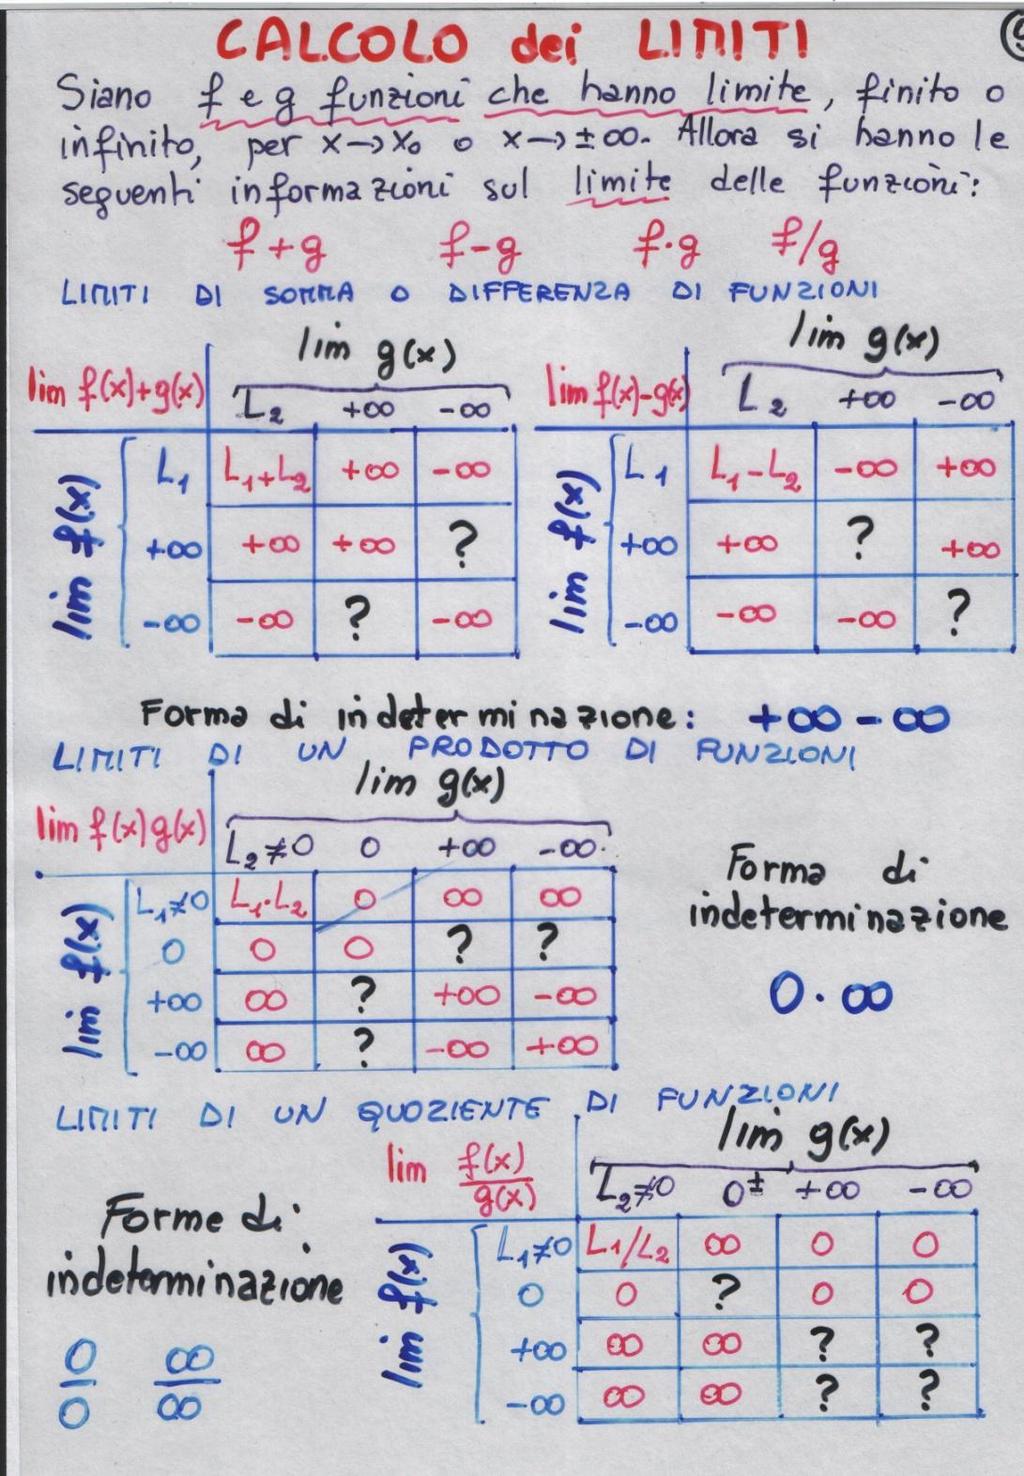 CALCOLO dei LIMITI
Siano f e g funzioni che hanno limite, finito o
infinito, per x→x₀ o x→±∞. Allora si hanno le
seguenti informazioni sul limite delle funzioni:
f+g f-g f·g f/g
LIMITI DI SOMMA O DIFFERENZA DI FUNZIONI
lim g(x)
lim f(x)+g(x) L₂ +∞ -∞
lim f(x)
L₁ L₁+L₂ +∞ -∞
+∞ +∞ +∞ ?
-∞ -∞ ? -∞
lim g(x)
lim f(x)-g(x) L₂ +∞ -∞
lim f(x)
L₁ L₁-L₂ -∞ +∞
+∞ +∞ ? +∞
-∞ -∞ -∞ ?
Forma di indeterminazione: +∞-∞
LIMITI DI UN PRODOTTO DI FUNZIONI
lim g(x)
lim f(x)g(x) L₂≠0 0 +∞ -∞
lim f(x)
L₁≠0 L₁·L₂ 0 ∞ ∞
0 0 0 ? ?
+∞ ∞ ? +∞ -∞
-∞ ∞ ? -∞ +∞
Forma di
indeterminazione
0·∞
LIMITI DI UN QUOZIENTE DI FUNZIONI
lim g(x)
lim f(x)/g(x) L₂≠0 0± +∞ -∞
lim f(x)
L₁≠0 L₁/L₂ ∞ 0 0
0 0 ? 0 0
+∞ ∞ ∞ ? ?
-∞ ∞ ∞ ? ?
Forme di
indeterminazione
0/0 ∞/∞